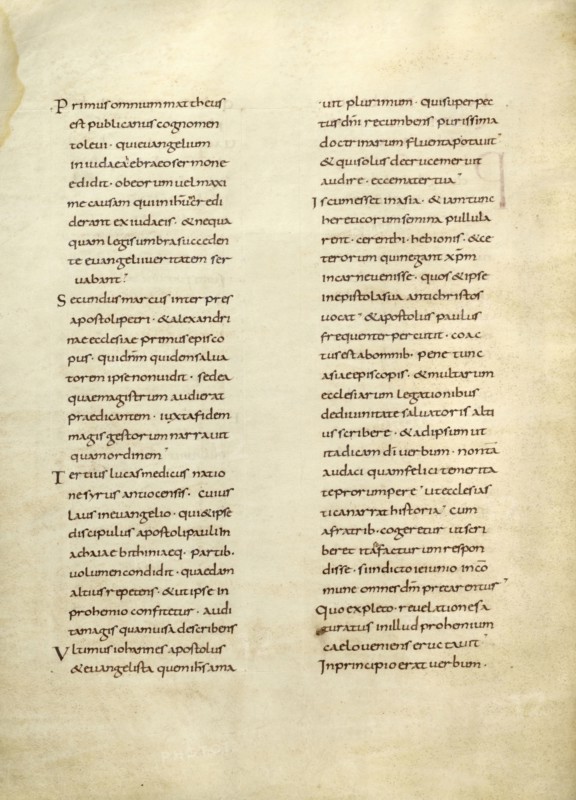 Primus omnium mattheus
est publicanus cognomen
to leui · qui euangelium
in iudaea ebraeo sermone
edidit · ob eorum uel maxi
me causam qui in ihm credi
derant ex iudaeis · & nequa
quam legis umbra succeden
te euangelii ueritatem ser
uabant ·
Secundus marcus interpres
apostoli petri · & alexandri
nae ecclesiae primus episco
pus · qui dnm quidem salua
torem ipse non uidit · sed ea
quae magistrum audierat
praedicantem · iuxta fidem
magis gestorum narrauit
quam ordinem
Tertius lucas medicus natio
ne syrus antiocensis · cuius
laus in euangelio · qui & ipse
discipulus apostoli pauli in
achaiae bithiniaeq · partib ·
uolumen condidit · quaedam
altius repetens · & ut ipse in
prohemio confitetur · audi
ta magis quam uisa describens
Vltimus iohannes apostolus
& euangelista quem ihs ama
uit plurimum · qui super pec
tus dni recumbens purissima
doctrinarum fluenta potauit
& qui solus de cruce meruit
audire · ecce mater tua
Is cum esset in asia · & iam tunc
hereticorum semina pullula
rent · cerenthi · hebionis · & ce
terorum qui negant xpm
in carne uenisse · quos & ipse
in epistola sua antichristos
uocat · & apostolus paulus
frequenter percutit · coac
tus est ab omnib · pene tunc
asiae episcopis · & multarum
ecclesiarum legationibus
de diuinitate saluatoris alti
us scribere · & ad ipsum ut
ita dicam di uerbum · non tā
audaci quam felici temerita
te prorumpere · ut ecclesias
tica narrat historia · cum
a fratrib · cogeretur ut scri
beret ita facturum respon
disse · si indicto ieiunio in cō
mune omnes dm precarentur
Quo expleto · reuelatione sa
turatus in illud prohemium
caelo ueniens eructauit
In principio erat uerbum ·